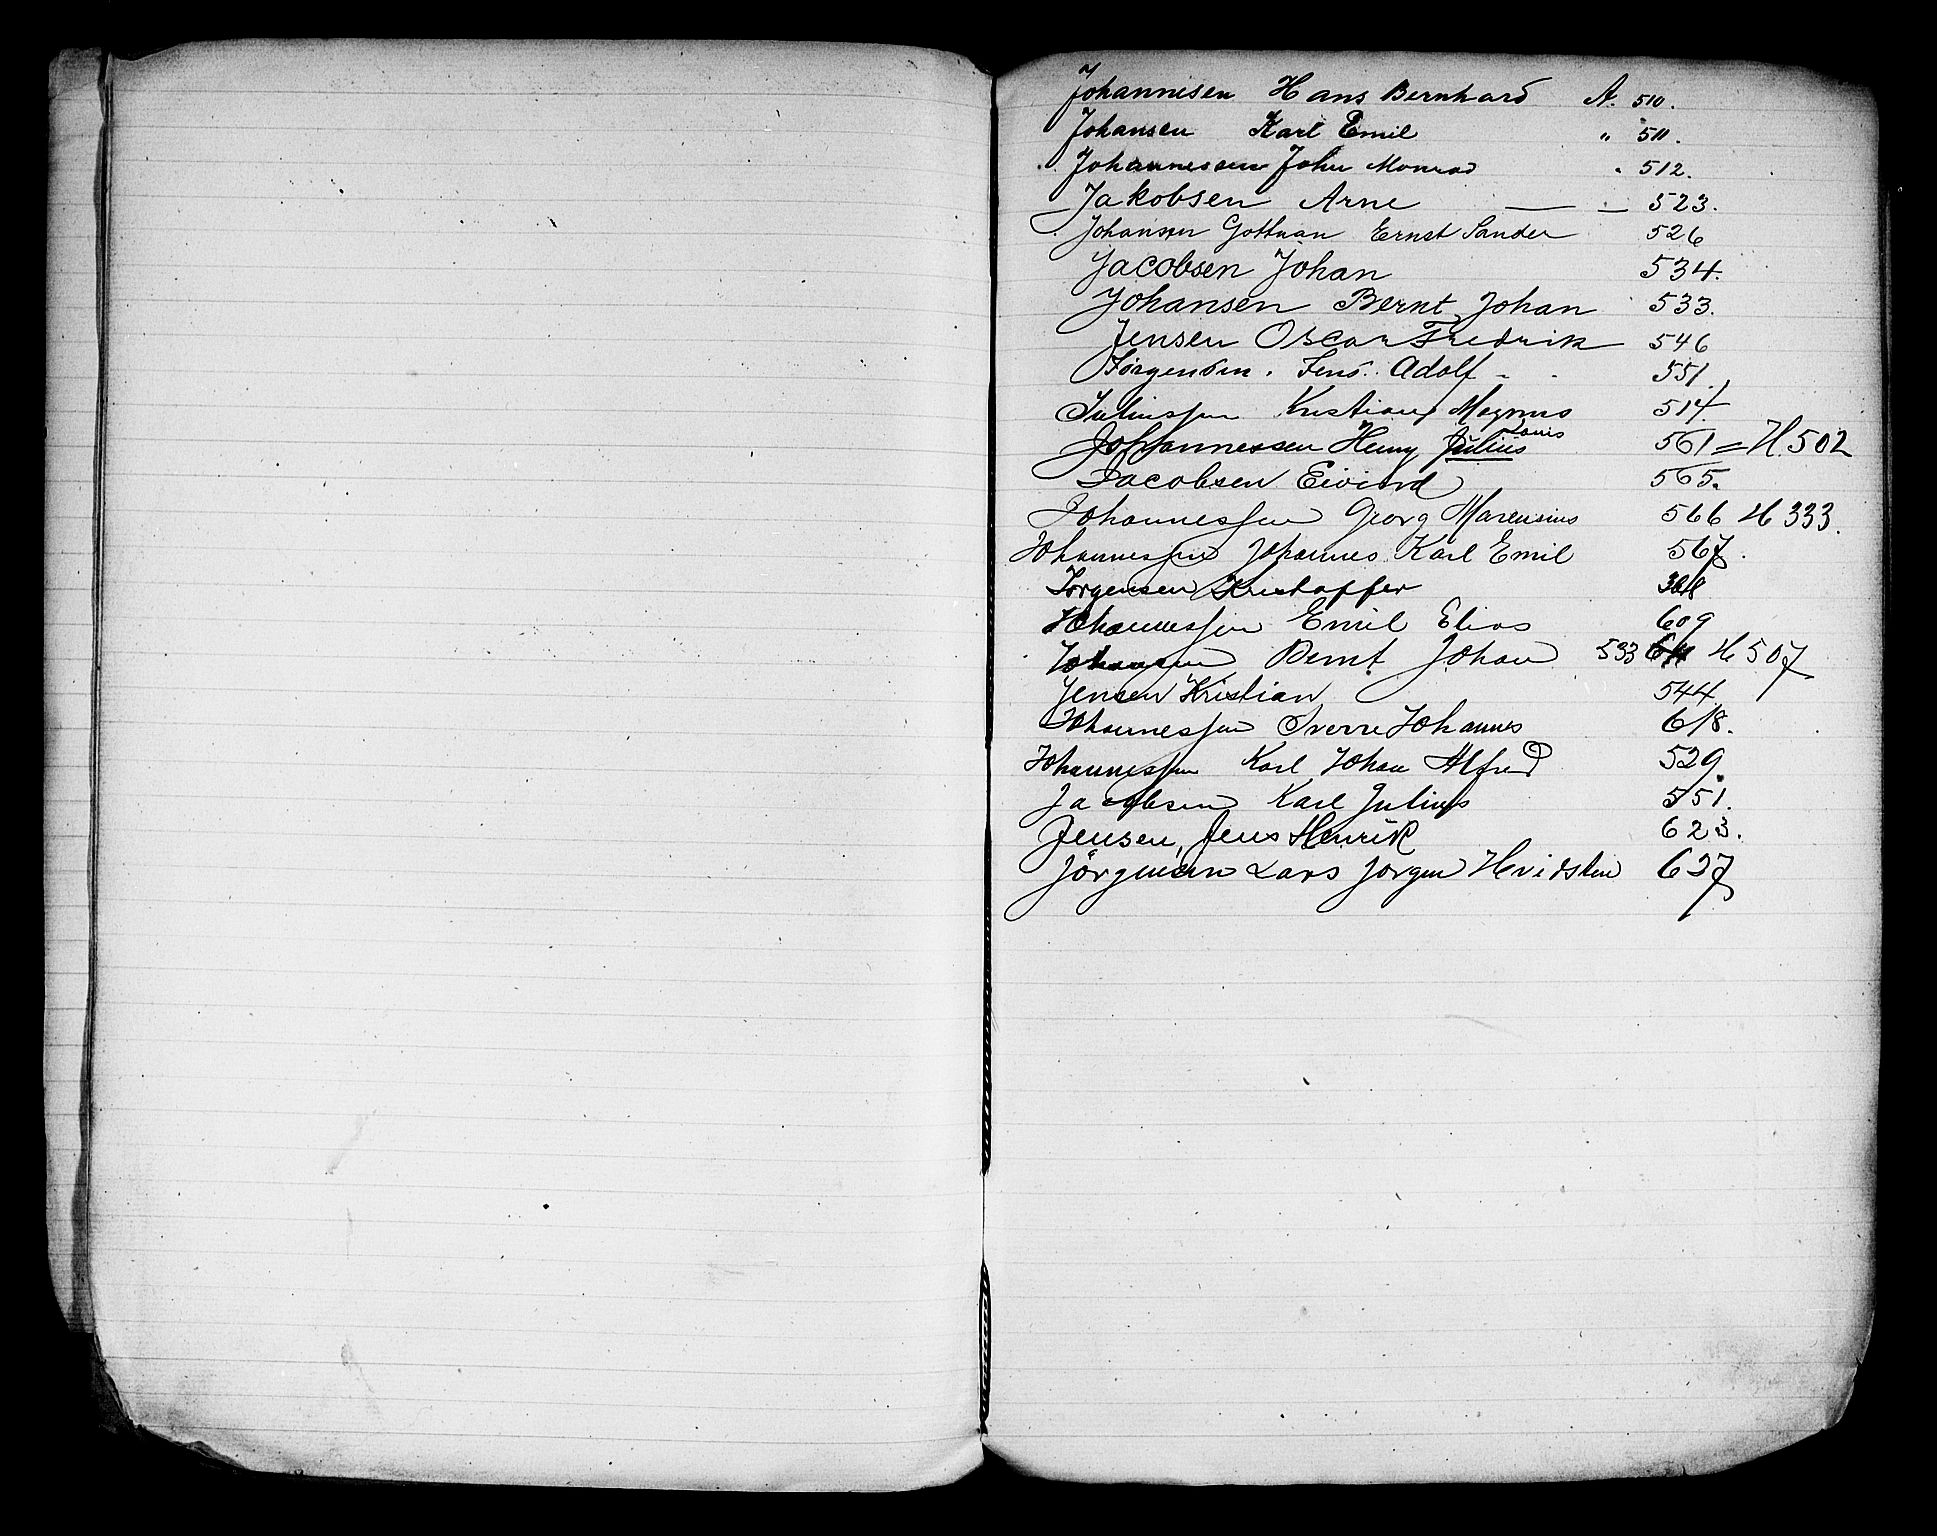 Johannesen Hans Bernhard A. 510.
Johansen Karl Emil " 511.
Johannessen John Monrad " 512.
Jakobsen Arne — — 523.
Johansen Gottman Ernst Sander 526
Jacobsen Johan 534.
Johansen Bernt Johan 533.
Jensen Oscar Fredrik 546
Jörgensen. Jens. Adolf - - 551.
Juliussen Kristian Magnus 514
Johannessen Henry Julius Louis 561 = H. 502
Jacobsen Eivind 565.
Johannessen Georg Marensius 566 H 333.
Johannessen Johannes Karl Emil 567.
Jorgensen Kristoffer
Johannessen Emil Elias 609
Johansen Bernt Johan 533 H 507
Jensen Kristian 544
Johannessen Sverre Johannes 618.
Johannessen Karl Johan Alfred 529
Jacobsen Karl Julius 551.
Jensen, Jens Henrik 623.
Jörgensen Lars Jörgen Hvidsten 627